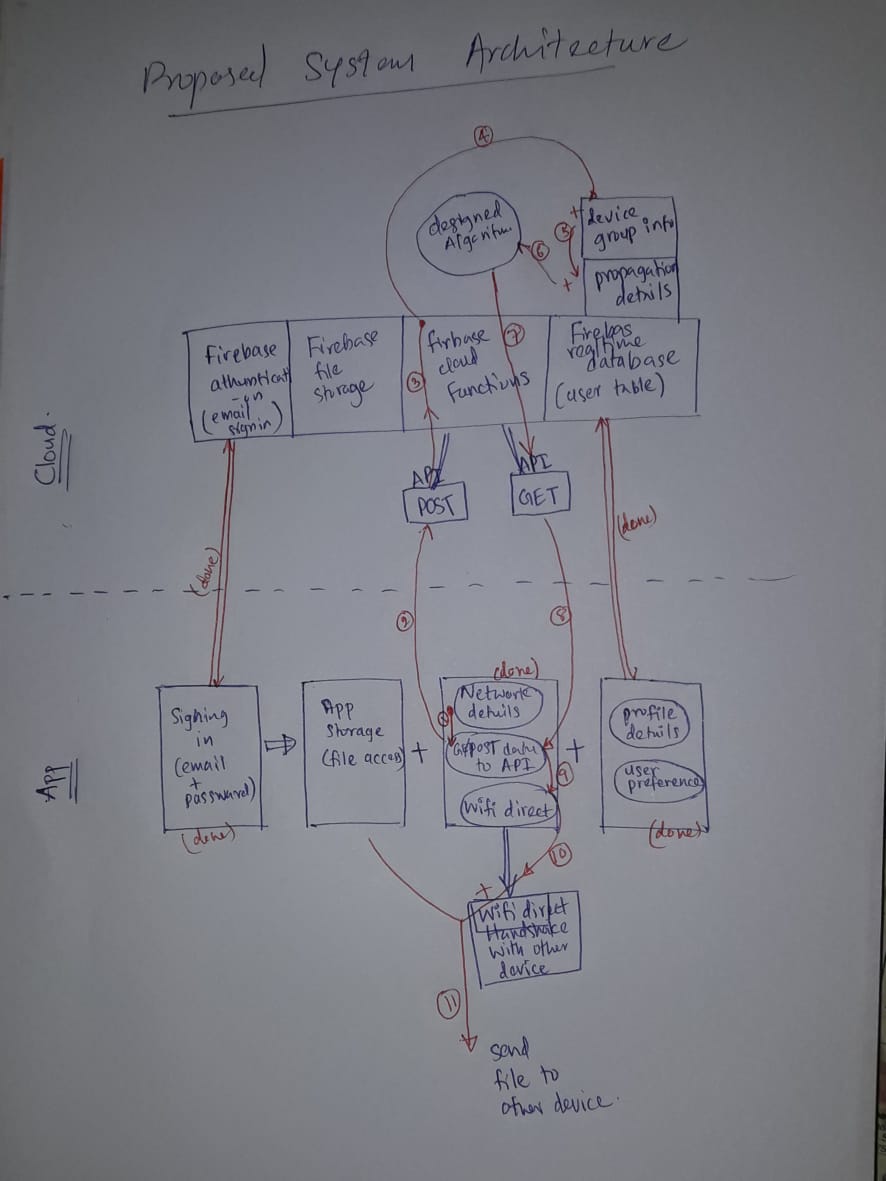 Proposed System Architecture
4
designed
Algorithm
+ device
group info
5
6
+
propagation
details
Firebase
athunticati
-on
(email
signin)
Firebase
file
storage
firbase
cloud
Functions
3
7
Firebas
realtime
database
(user table)
Cloud.
API
POST
API
GET
(done)
(done)
2
8
(done)
Signing
in
(email
+
password)
(done)
App
storage
(file acces)
+
Network
details
G/POST data
to API
9
Wifi direct
+
profile
details
user
preference
(done)
App
10
+
Wifi direct
Handshake
with other
device
11
send
file to
other device.